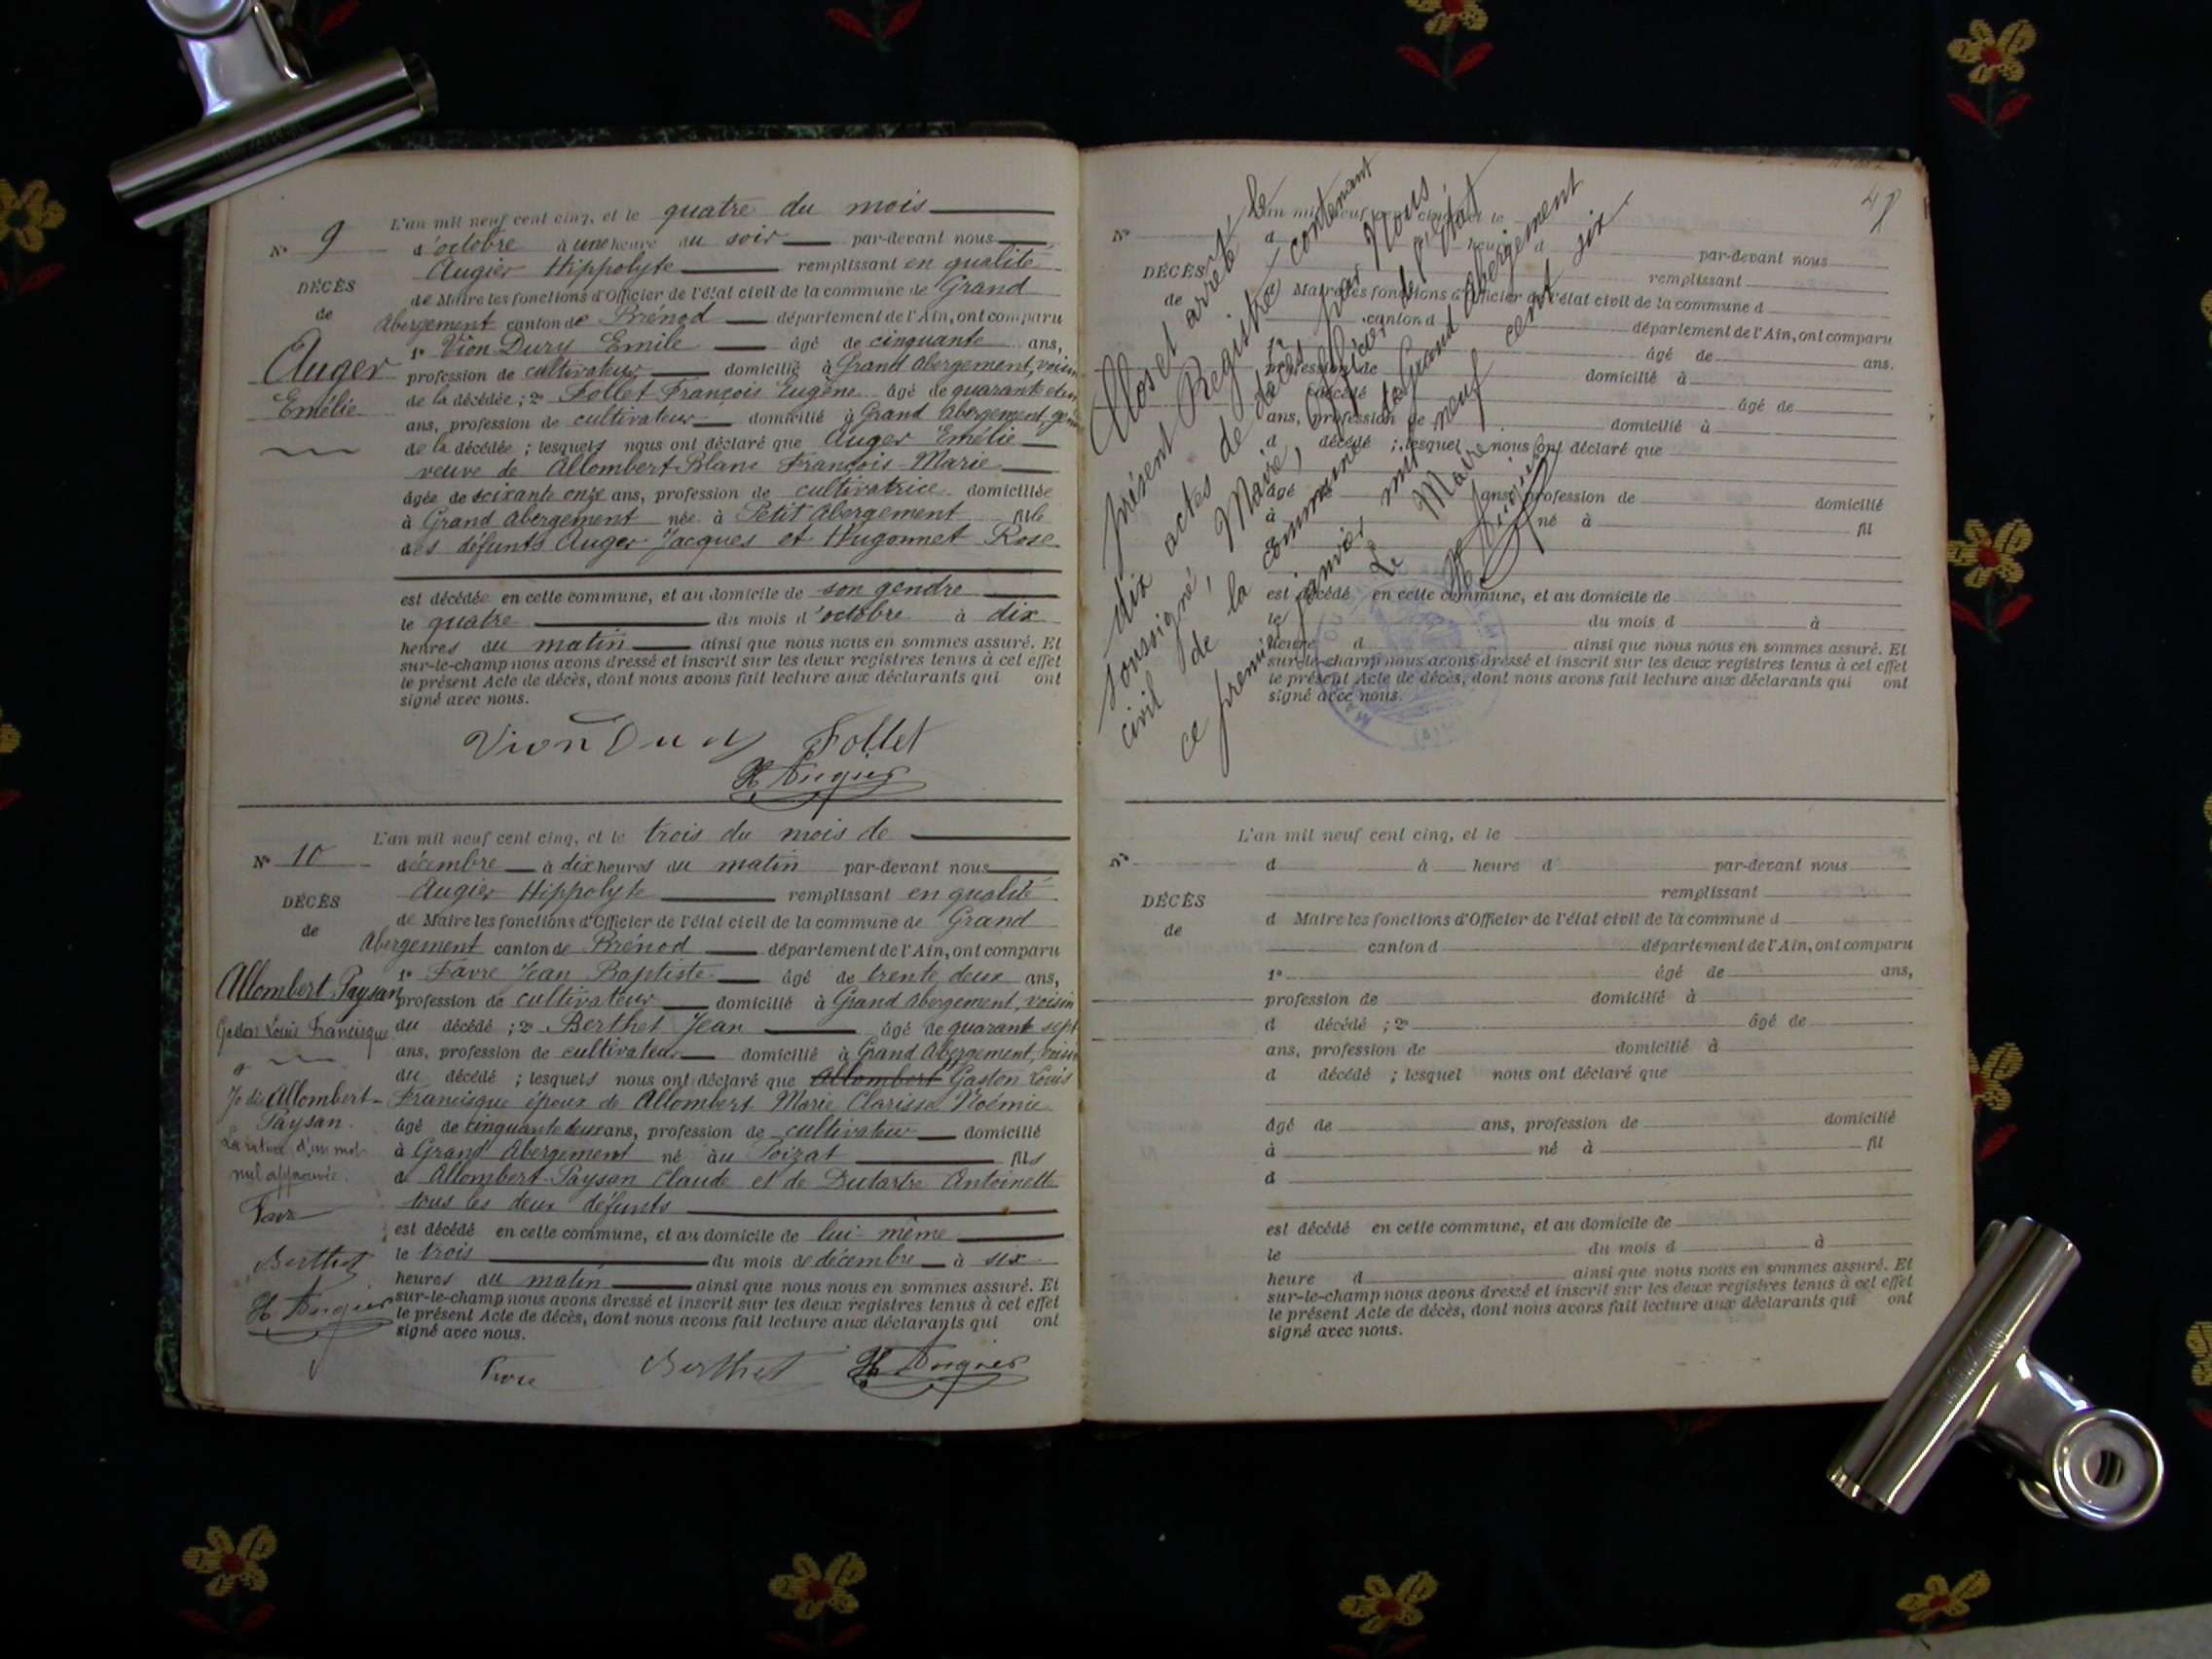 L'an mil neuf cent cinq, et le quatre du mois
N° 9 d'octobre à une heure du soir par-devant nous
Augier Hippolyte remplissant en qualité
DÉCÈS
de Maire les fonctions d'Officier de l'état civil de la commune de Grand
de
Abergement canton de Brénod département de l'Ain, ont comparu
Auger
1° Vion-Dury Emile âgé de cinquante ans,
profession de cultivateur domicilié à Grand Abergement, voisin
Emélie
de la décédée ; 2° Follet François Eugène âgé de quarante et un
ans, profession de cultivateur domicilié à Grand Abergement,
de la décédée ; lesquels nous ont déclaré que Auger Emélie
veuve de Allombert-Blanc François-Marie
âgée de soixante onze ans, profession de cultivatrice domiciliée
à Grand Abergement née à Petit Abergement fille
des défunts Auger Jacques et Hugonnet Rose
est décédée en cette commune, et au domicile de son gendre
le quatre du mois d'octobre à dix
heures du matin ainsi que nous nous en sommes assuré. Et
sur-le-champ nous avons dressé et inscrit sur les deux registres tenus à cet effet
le présent Acte de décès, dont nous avons fait lecture aux déclarants qui ont
signé avec nous.
Vion Dury Follet
H Augier
L'an mil neuf cent cinq, et le trois du mois de
N° 10 décembre à dix heures du matin par-devant nous
Augier Hippolyte remplissant en qualité
DÉCÈS
de Maire les fonctions d'Officier de l'état civil de la commune de Grand
de
Abergement canton de Brénod département de l'Ain, ont comparu
Allombert-Paysan
1° Favre Jean Baptiste âgé de trente deux ans,
profession de cultivateur domicilié à Grand Abergement, voisin
Gaston Louis Francisque
du décédé ; 2° Berthet Jean âgé de quarante sept
ans, profession de cultivateur domicilié à Grand Abergement, voisin
du décédé ; lesquels nous ont déclaré que Allombert Gaston Louis
Je dis Allombert-
Paysan.
Francisque époux de Allombert Marie Clarisse Noémie
âgé de cinquante deux ans, profession de cultivateur domicilié
La rature d'un mot
nul approuvée.
à Grand Abergement né au Poizat fils
de Allombert-Paysan Claude et de Dutartre Antoinette
tous les deux défunts
Favre
est décédé en cette commune, et au domicile de lui-même
Berthet
le trois du mois de décembre à six
heures du matin ainsi que nous nous en sommes assuré. Et
H Augier
sur-le-champ nous avons dressé et inscrit sur les deux registres tenus à cet effet
le présent Acte de décès, dont nous avons fait lecture aux déclarants qui ont
signé avec nous.
Favre Berthet H Augier
48
Clos et arrêté le
présent Registre contenant
dix actes de décès par Nous
soussigné, Maire, Officier de l'état
civil de la commune de Grand Abergement
ce premier janvier mil neuf cent six.
Le Maire
H Augier
L'an mil neuf cent cinq, et le
N° d heure d par-devant nous
DÉCÈS
remplissant
de
d Maire les fonctions d'Officier de l'état civil de la commune d
canton d département de l'Ain, ont comparu
1° âgé de ans,
profession de domicilié à
décédé âgé de
ans, profession de domicilié à
d décédé ; lesquel nous ont déclaré que
âgé ans, profession de domicilié
à né à fil
est décédé en cette commune, et au domicile de
le du mois d à
heure d ainsi que nous nous en sommes assuré. Et
sur-le-champ nous avons dressé et inscrit sur les deux registres tenus à cet effet
le présent Acte de décès, dont nous avons fait lecture aux déclarants qui ont
signé avec nous.
L'an mil neuf cent cinq, et le
N° d à heure d par-devant nous
remplissant
DÉCÈS
d Maire les fonctions d'Officier de l'état civil de la commune d
de
canton d département de l'Ain, ont comparu
1° âgé de ans,
profession de domicilié à
d décédé ; 2° âgé de
ans, profession de domicilié à
d décédé ; lesquel nous ont déclaré que
âgé de ans, profession de domicilié
à né à fil
d
est décédé en cette commune, et au domicile de
le du mois d à
heure d ainsi que nous nous en sommes assuré. Et
sur-le-champ nous avons dressé et inscrit sur les deux registres tenus à cet effet
le présent Acte de décès, dont nous avons fait lecture aux déclarants qui ont
signé avec nous.